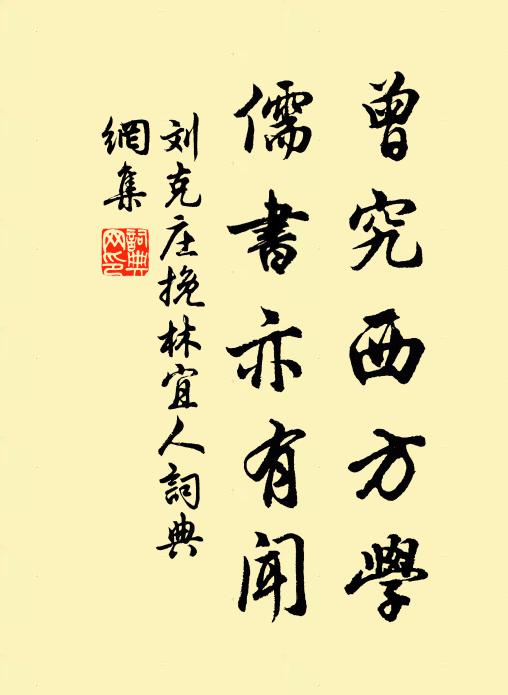 曾究西方學
儒書亦有聞
刘克庄挽林宜人詞典
網集
詞典
网印